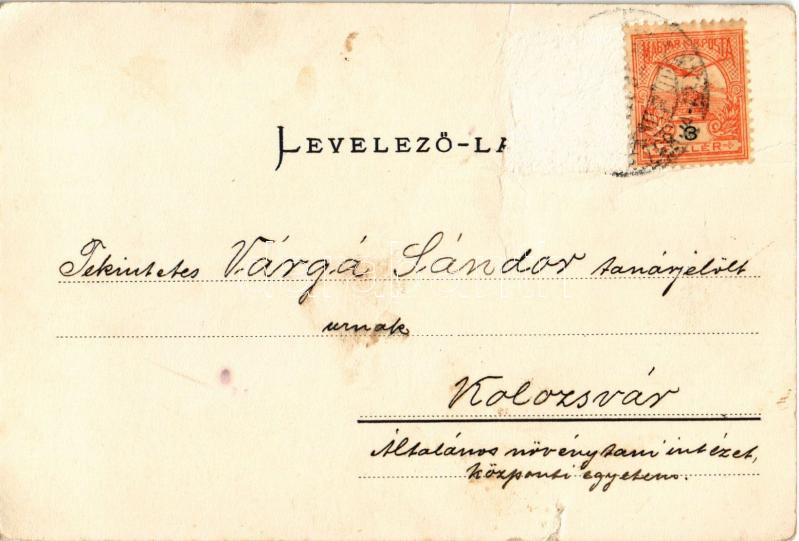 MAGYAR KIR. POSTA
6
LEVELEZŐ-LA
Tekintetes Várgá Sándor tanárjelölt
urnak
Kolozsvár
Általános növénytani intézet,
központi egyetem.